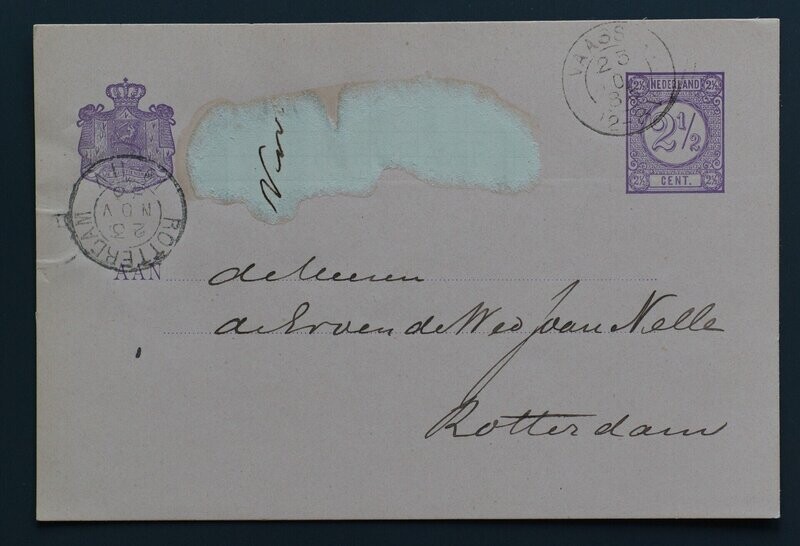 VAASSEN
23
NEDERLAND
2½ 2½
2½
CENT.
2½ 2½
ROTTERDAM
23
NOV
AAN
de Heeren
de Erven de Wed J van Nelle
Rotterdam